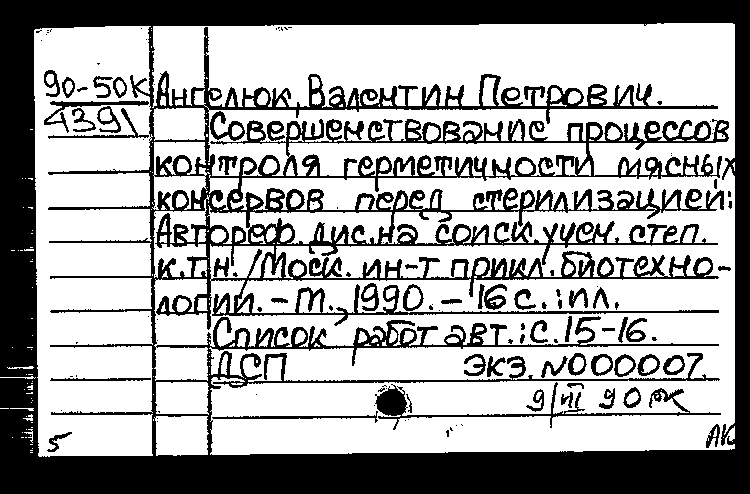 90-50К Ангелюк, Валентин Петрович.
4391 Совершенствование процессов
контроля герметичности мясных
консервов перед стерилизацией:
Автореф. дис. на соиск. учен. степ.
к.т.н. /Моск. ин-т прикл. биотехно-
логии. - М., 1990. - 16 с.: ил.
Список работ авт.: с. 15-16.
ДСП ЭКЗ. N000007.
9/III 90
5 АК